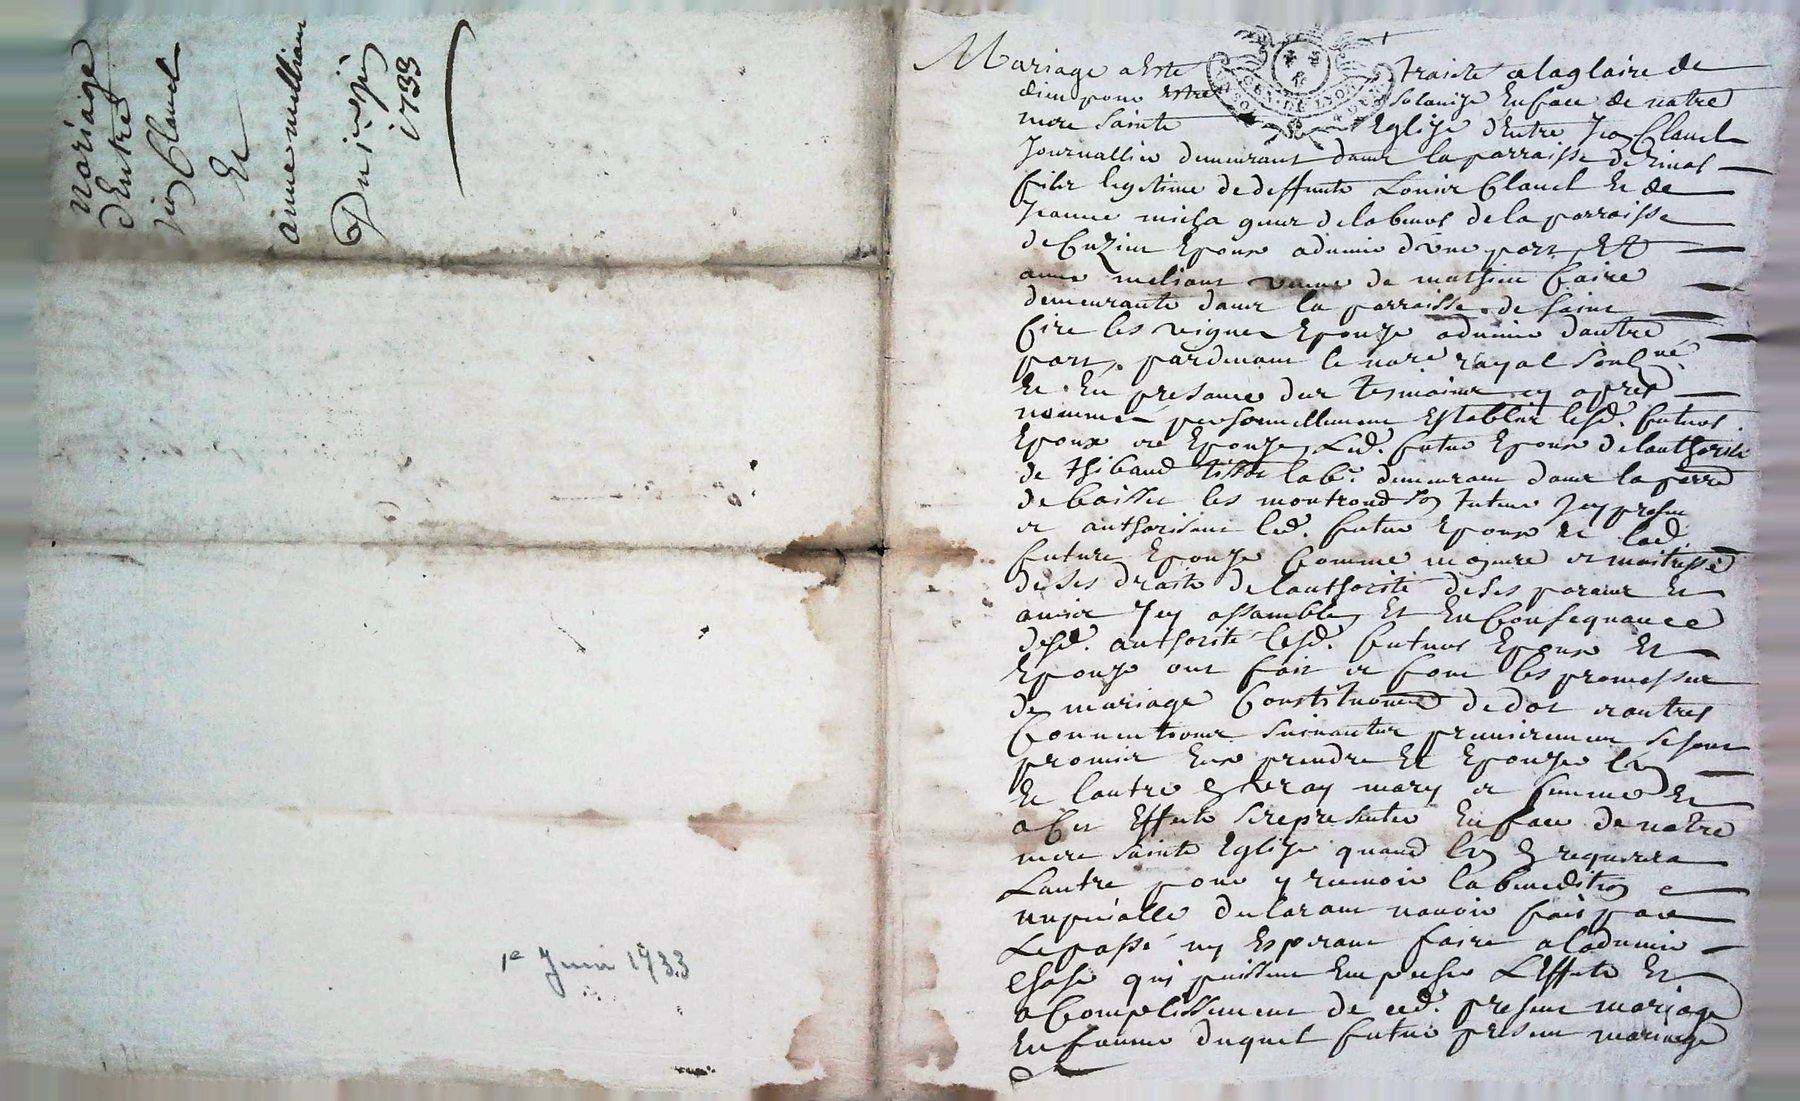 Mariage
d'Entre
Jean Clauel
Et
anne mellian
Du ie juin
1733
1e Juin 1733
GEN. DE LYON
Mariage a este traité a la glaire de
dieu pour estre solanizé En face de natre
mere Sainte Eglize d'Entre Jean Clauel
Journallier demeurant dans la parraisse de
filz legitime de deffunts Louis Clauel Et de
Jeanne de la parraisse
de Cuzieu Epoux aduenir d'une part Et
anne meliant veuue de mathieu faire
demeurante dans la parraisse de Saint
Cire les vignes Epouze aduenir d'autre
part, pardeuant le nore royal soubne
Et En presance des tesmoins cy apres
nommés personnellement Establis lesd. futurs
Epoux et Epouze, Led. futur Epoux de l'authorite
de thibaud labr. demeurant dans la parre
de les montrond son tuteur Icy presant
et authorisant led. futur Epoux Et lad.
future Epouze Comme majeure et maitresse
de ses droits de l'authorité de ses parans Et
amis Icy assamblés Et En Consequance
desd. authorité lesd. futurs Epoux Et
Epouze ont fait et font les promesses
de mariage Constitutions de dot et autres
Conuentions suiuantes premierement se sont
promis Eux prendre Et Epouzer l'un
Et l'autre En vray mary et femme Et
a Cet Effect se representer En face de natre
mere Sainte Eglize quand l'un En requerera
L'autre pour y receuoir la benediction
nuptialle declarant n'auoir fait par
Le passé ny Esperant faire a l'aduenir
chose qui puissent Empecher L'Effect Et
acomplissement de ced. presant mariage
En faueur duquel futur presant mariage